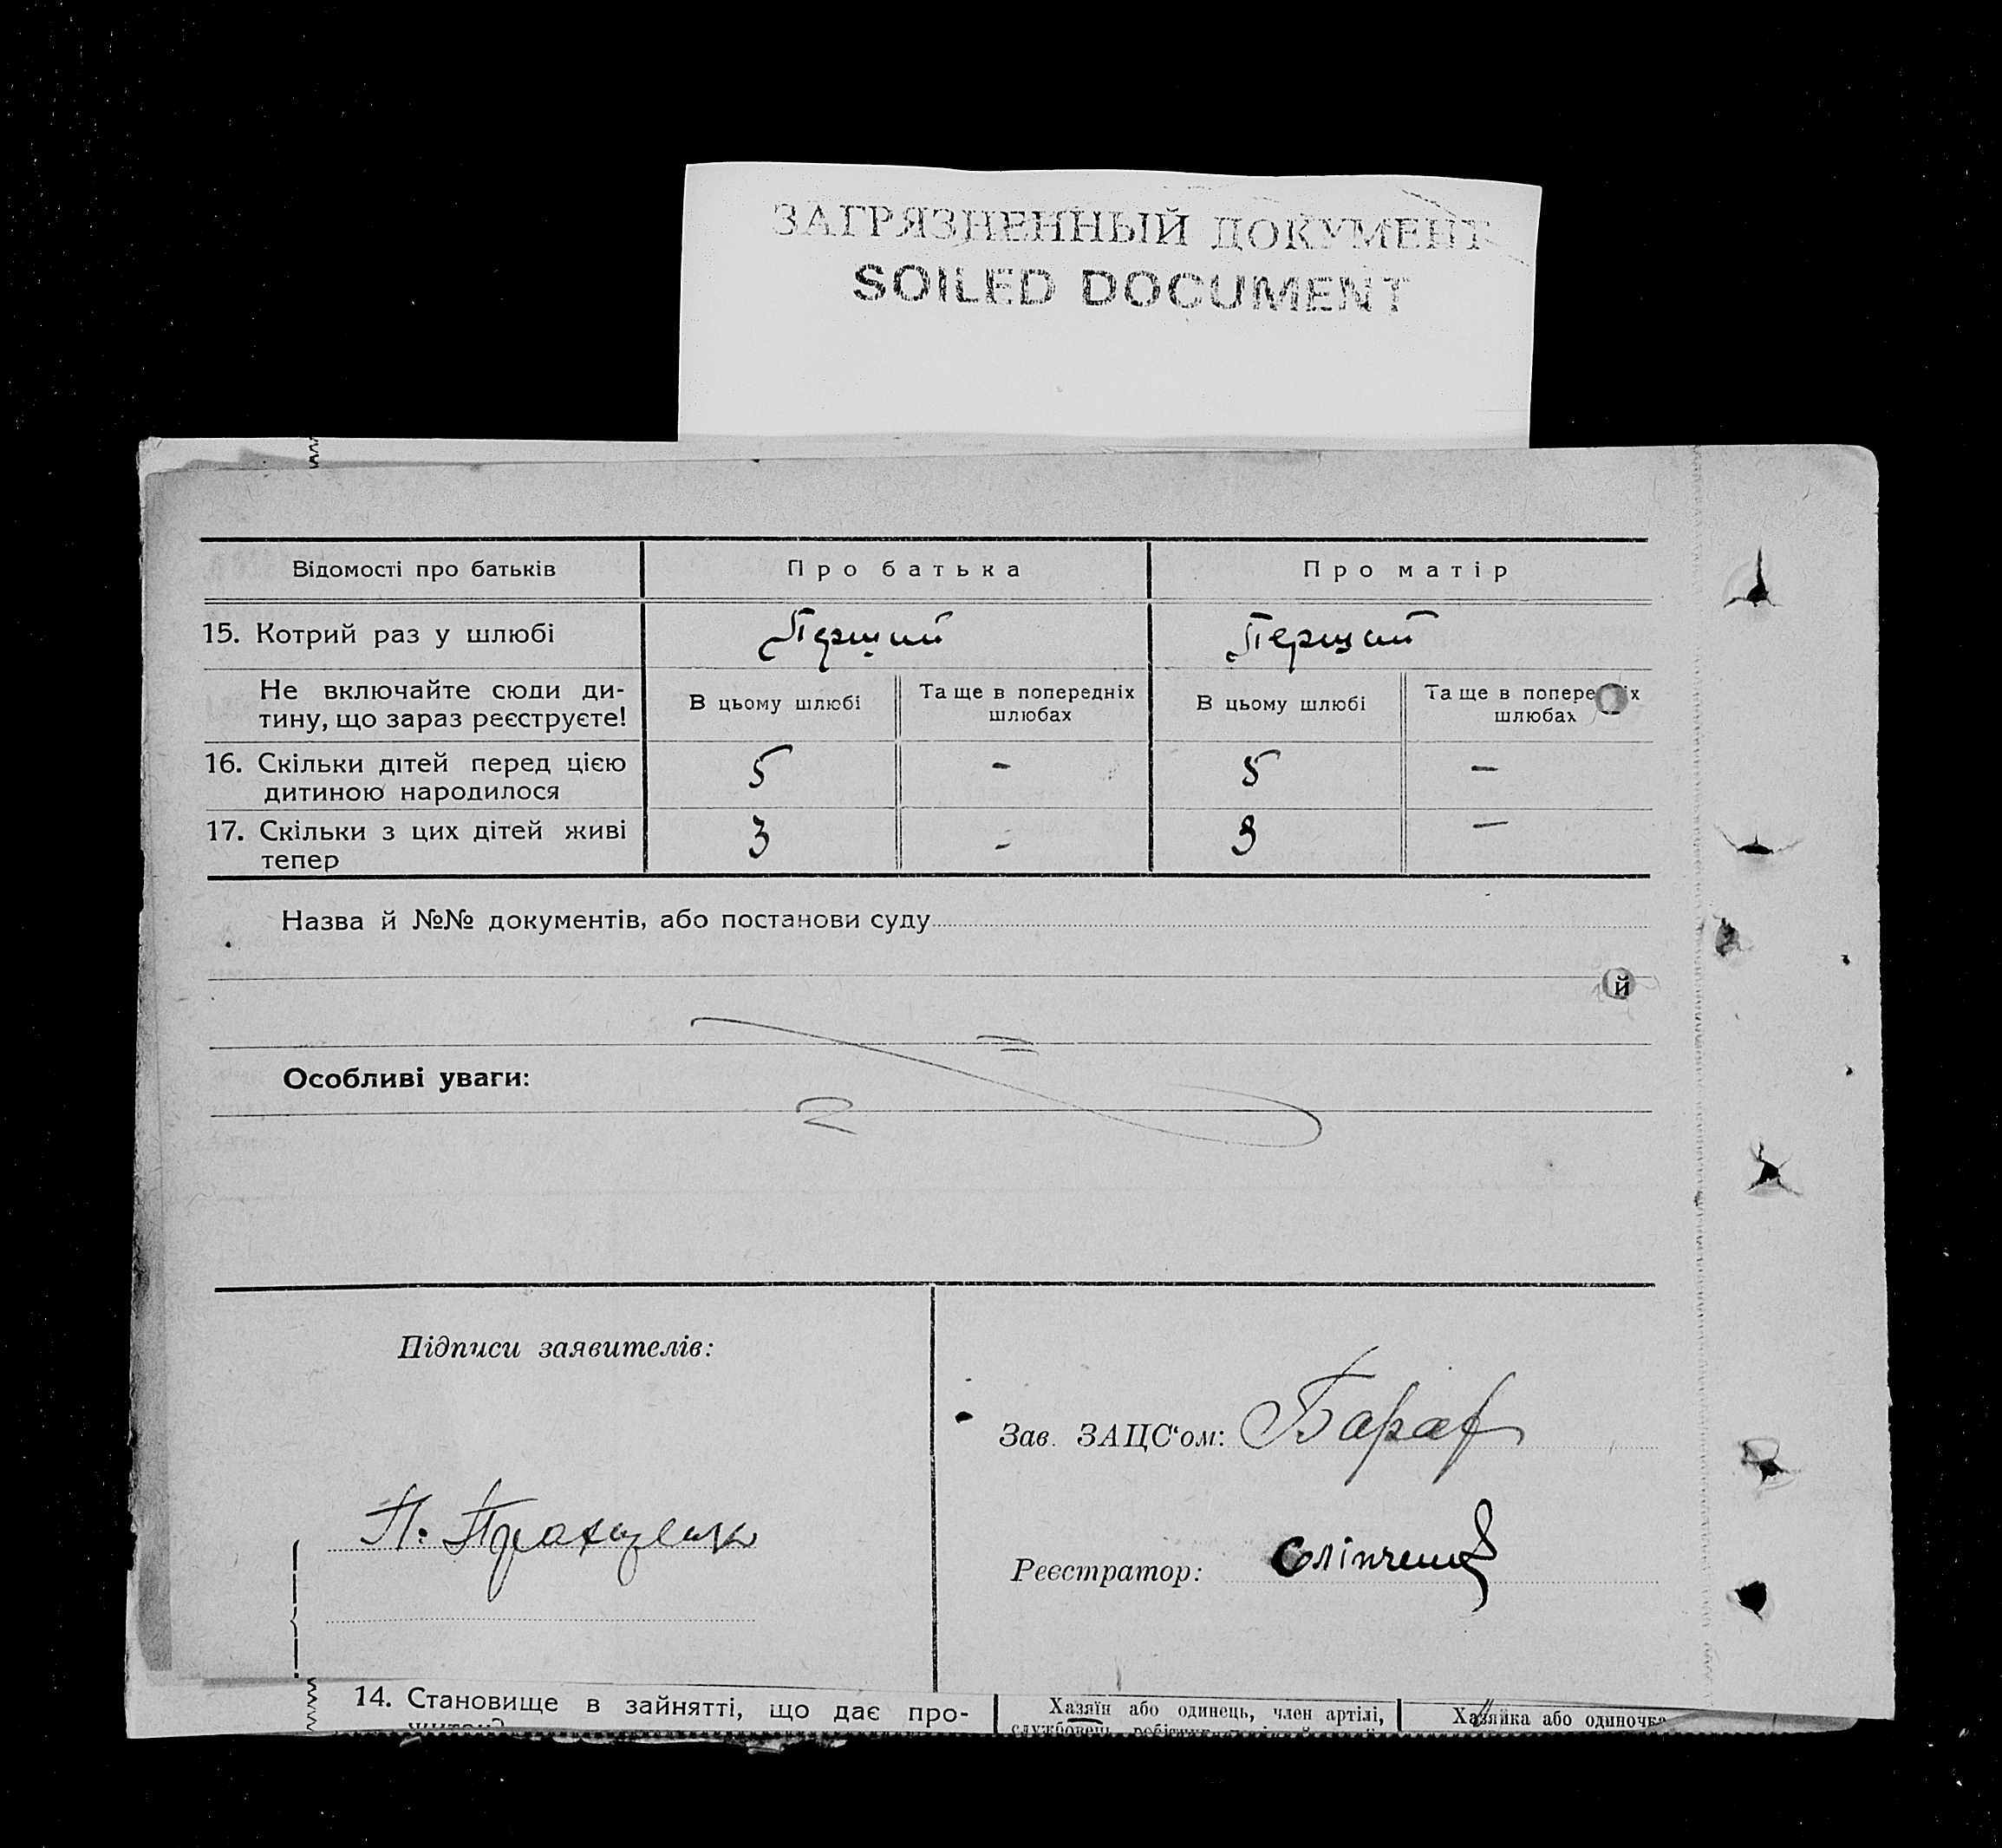 ЗАГРЯЗНЕННЫЙ ДОКУМЕНТ
SOILED DOCUMENT
Відомості про батьків Про батька Про матір
15. Котрий раз у шлюбі Перший Перший
Не включайте сюди ди-
тину, що зараз реєструєте!
В цьому шлюбі
Та ще в попередніх
шлюбах
В цьому шлюбі
Та ще в попере іх
шлюбах
16. Скільки дітей перед цією
дитиною народилося
5 - 5 —
17. Скільки з цих дітей живі
тепер
3 - 3 —
Назва й №№ документів, або постанови суду
й
Особливі уваги:
Підписи заявителів:
Зав. ЗАЦС‘ом:
П.
Реєстратор:
14. Становище в зайнятті, що дає про-
Хазяїн або одинець, член артілі,
Хазяйка або одиночка